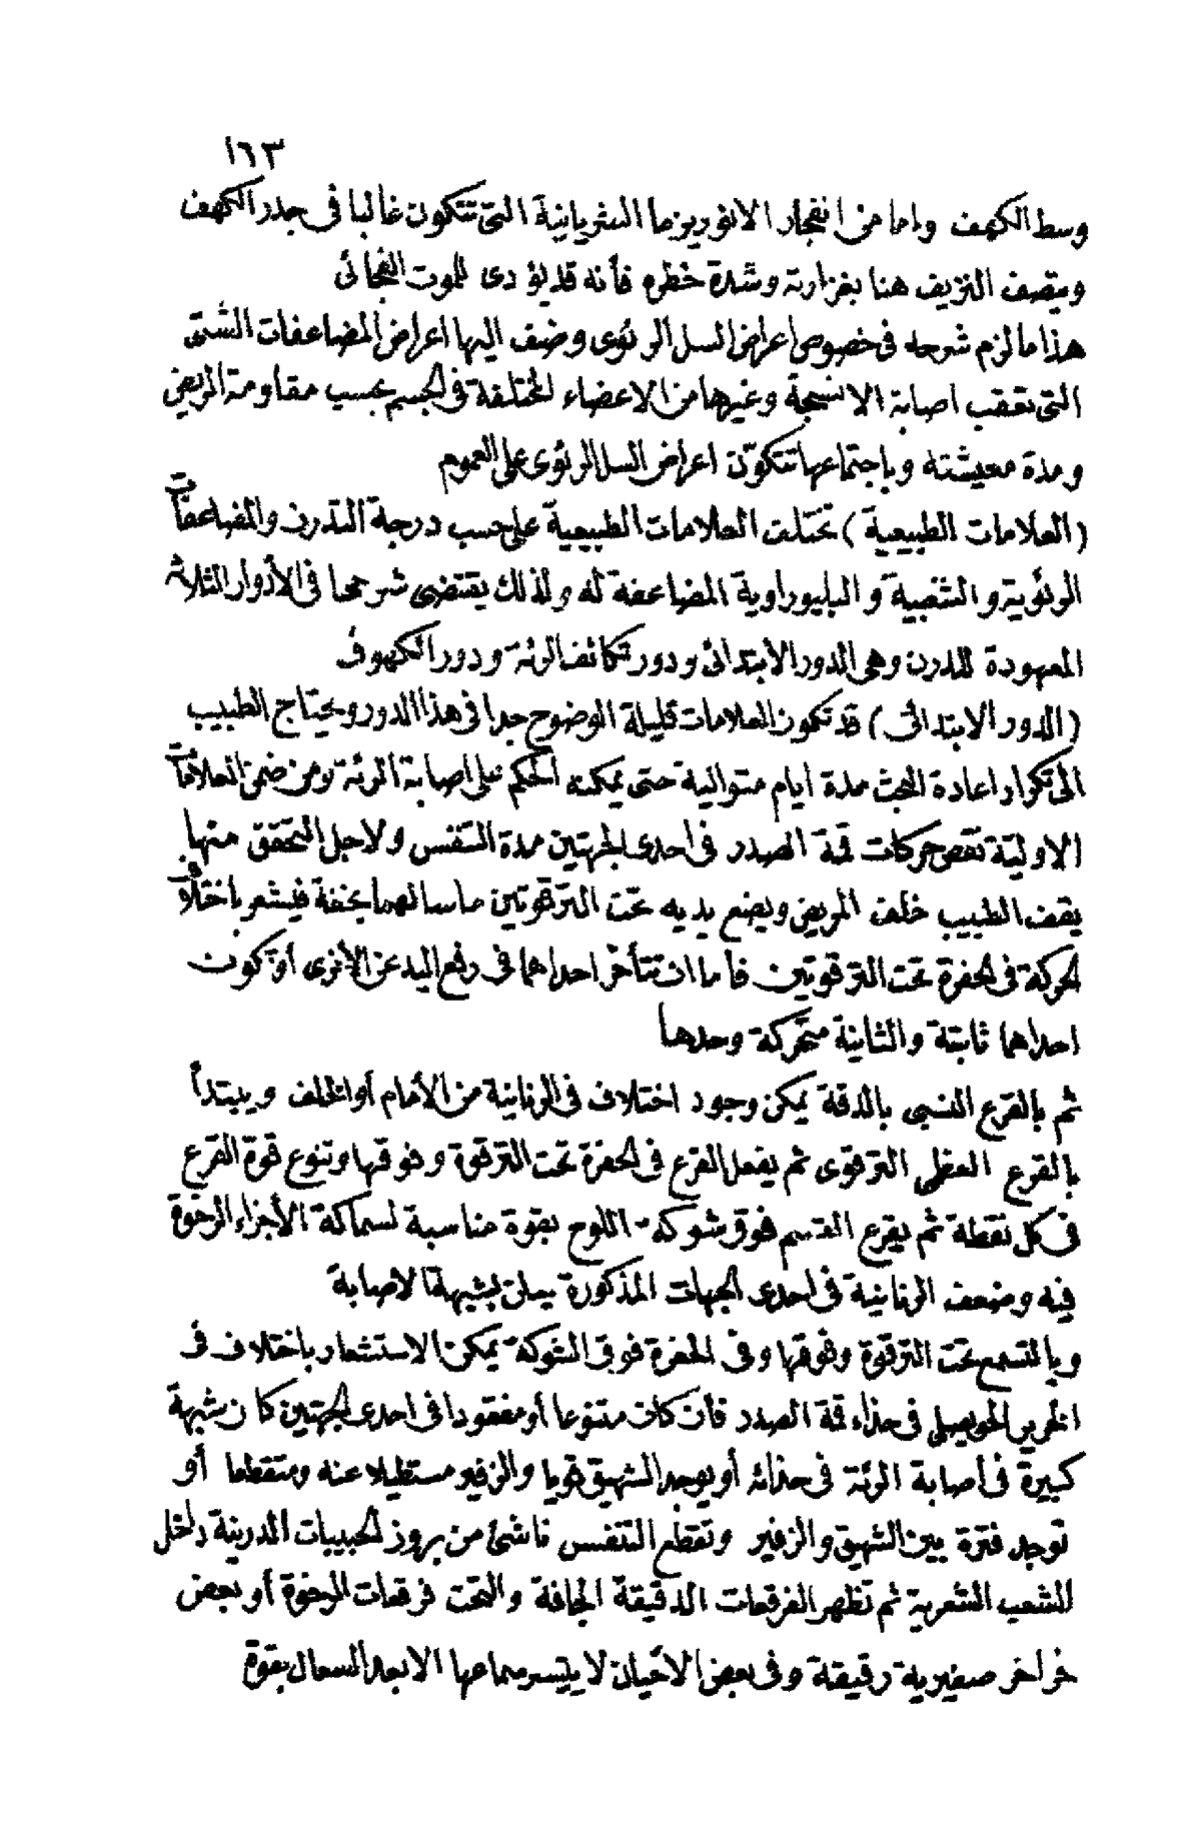 ١٦٣
وسط الكهف واما من انفجار الانوريزما الشريانية التى تتكون غالبا فى جدر الكهف
ويتصف النزيف هنا بغزارته وشدة خطره فأنه قد يؤدى للموت الفجائى
هذا ما لزم شرحه فى خصوص اعراض السل الرئوى وضف اليها اعراض المضاعفات الشتى
التى تعقب اصابة الانسجة وغيرها من الاعضاء المختلفة فى الجسم بحسب مقاومة المريض
ومدة معيشته وباجتماعها تتكوّن اعراض السل الرئوى على العموم
(العلامات الطبيعية) تختلف العلامات الطبيعية على حسب درجة التدرن والمضاعفات
الرئوية والشعبية والبليوراوية المضاعفة له ولذلك يقتضى شرحها فى الأدوار الثلاثة
المعهودة للدرن وهى الدور الأبتدائى ودور تكاثف الرئة ودور الكهوف
(الدور الابتدائى) قد تكون العلامات قليلة الوضوح جدا فى هذا الدور ويحتاج الطبيب
الى تكرار اعادة البحث مدة ايام متوالية حتى يمكنه الحكم على اصابة الرئة ومن ضمن العلامات
الاولية نقص حركات قمة الصدر فى احدى الجهتين مدة التنفس ولاجل التحقق منها
يقف الطبيب خلف المريض ويضع يديه تحت الترقوتين ماسا لهما بخفة فيشعر باختلاف
الحركة فى الحفرة تحت الترقوتين فاما ان تتأخر احداهما فى رفع اليد عن الأخرى أو تكون
احداهما ثابتة والثانية متحركة وحدها
ثم بالقرع النسبى بالدقة يمكن وجود اختلاف فى الرنانية من الأمام أو الخلف ويبتدأ
بالقرع العظمى الترقوى ثم يفعل القرع فى الحفرة تحت الترقوة وفوقها وتنوع قوة القرع
فى كل نقطة ثم يقرع القسم فوق شوكة اللوح بقوة مناسبة لسماكة الأجزاء الرخوة
فيه وضعف الرنانية فى احدى الجهات المذكورة يعلن بشبهة الاصابة
وبالتسمع تحت الترقوة وفوقها وفى الحفرة فوق الشوكة يمكن الاستشعار باختلاف فى
الخرير الحويصلى فى حذاء قمة الصدر فأن كان متنوعا أو مفقودا فى احدى الجهتين كان شبهة
كبيرة فى أصابة الرئة فى حذائه أو يوجد الشهيق قويا والزفير مستطيلا عنه ومتقطعا أو
توجد فترة بين الشهيق والزفير وتقطع التنفس ناشئ من بروز الحبيبات الدرنية داخل
للشعب الشعرية ثم تظهر الفرقعات الدقيقة الجافة والتحت فرقعات الرخوة أو بعض
خراخر صفيرية رقيقة وفى بعض الاحيان لا يتيسر سماعها الا بعد السعال بقوة